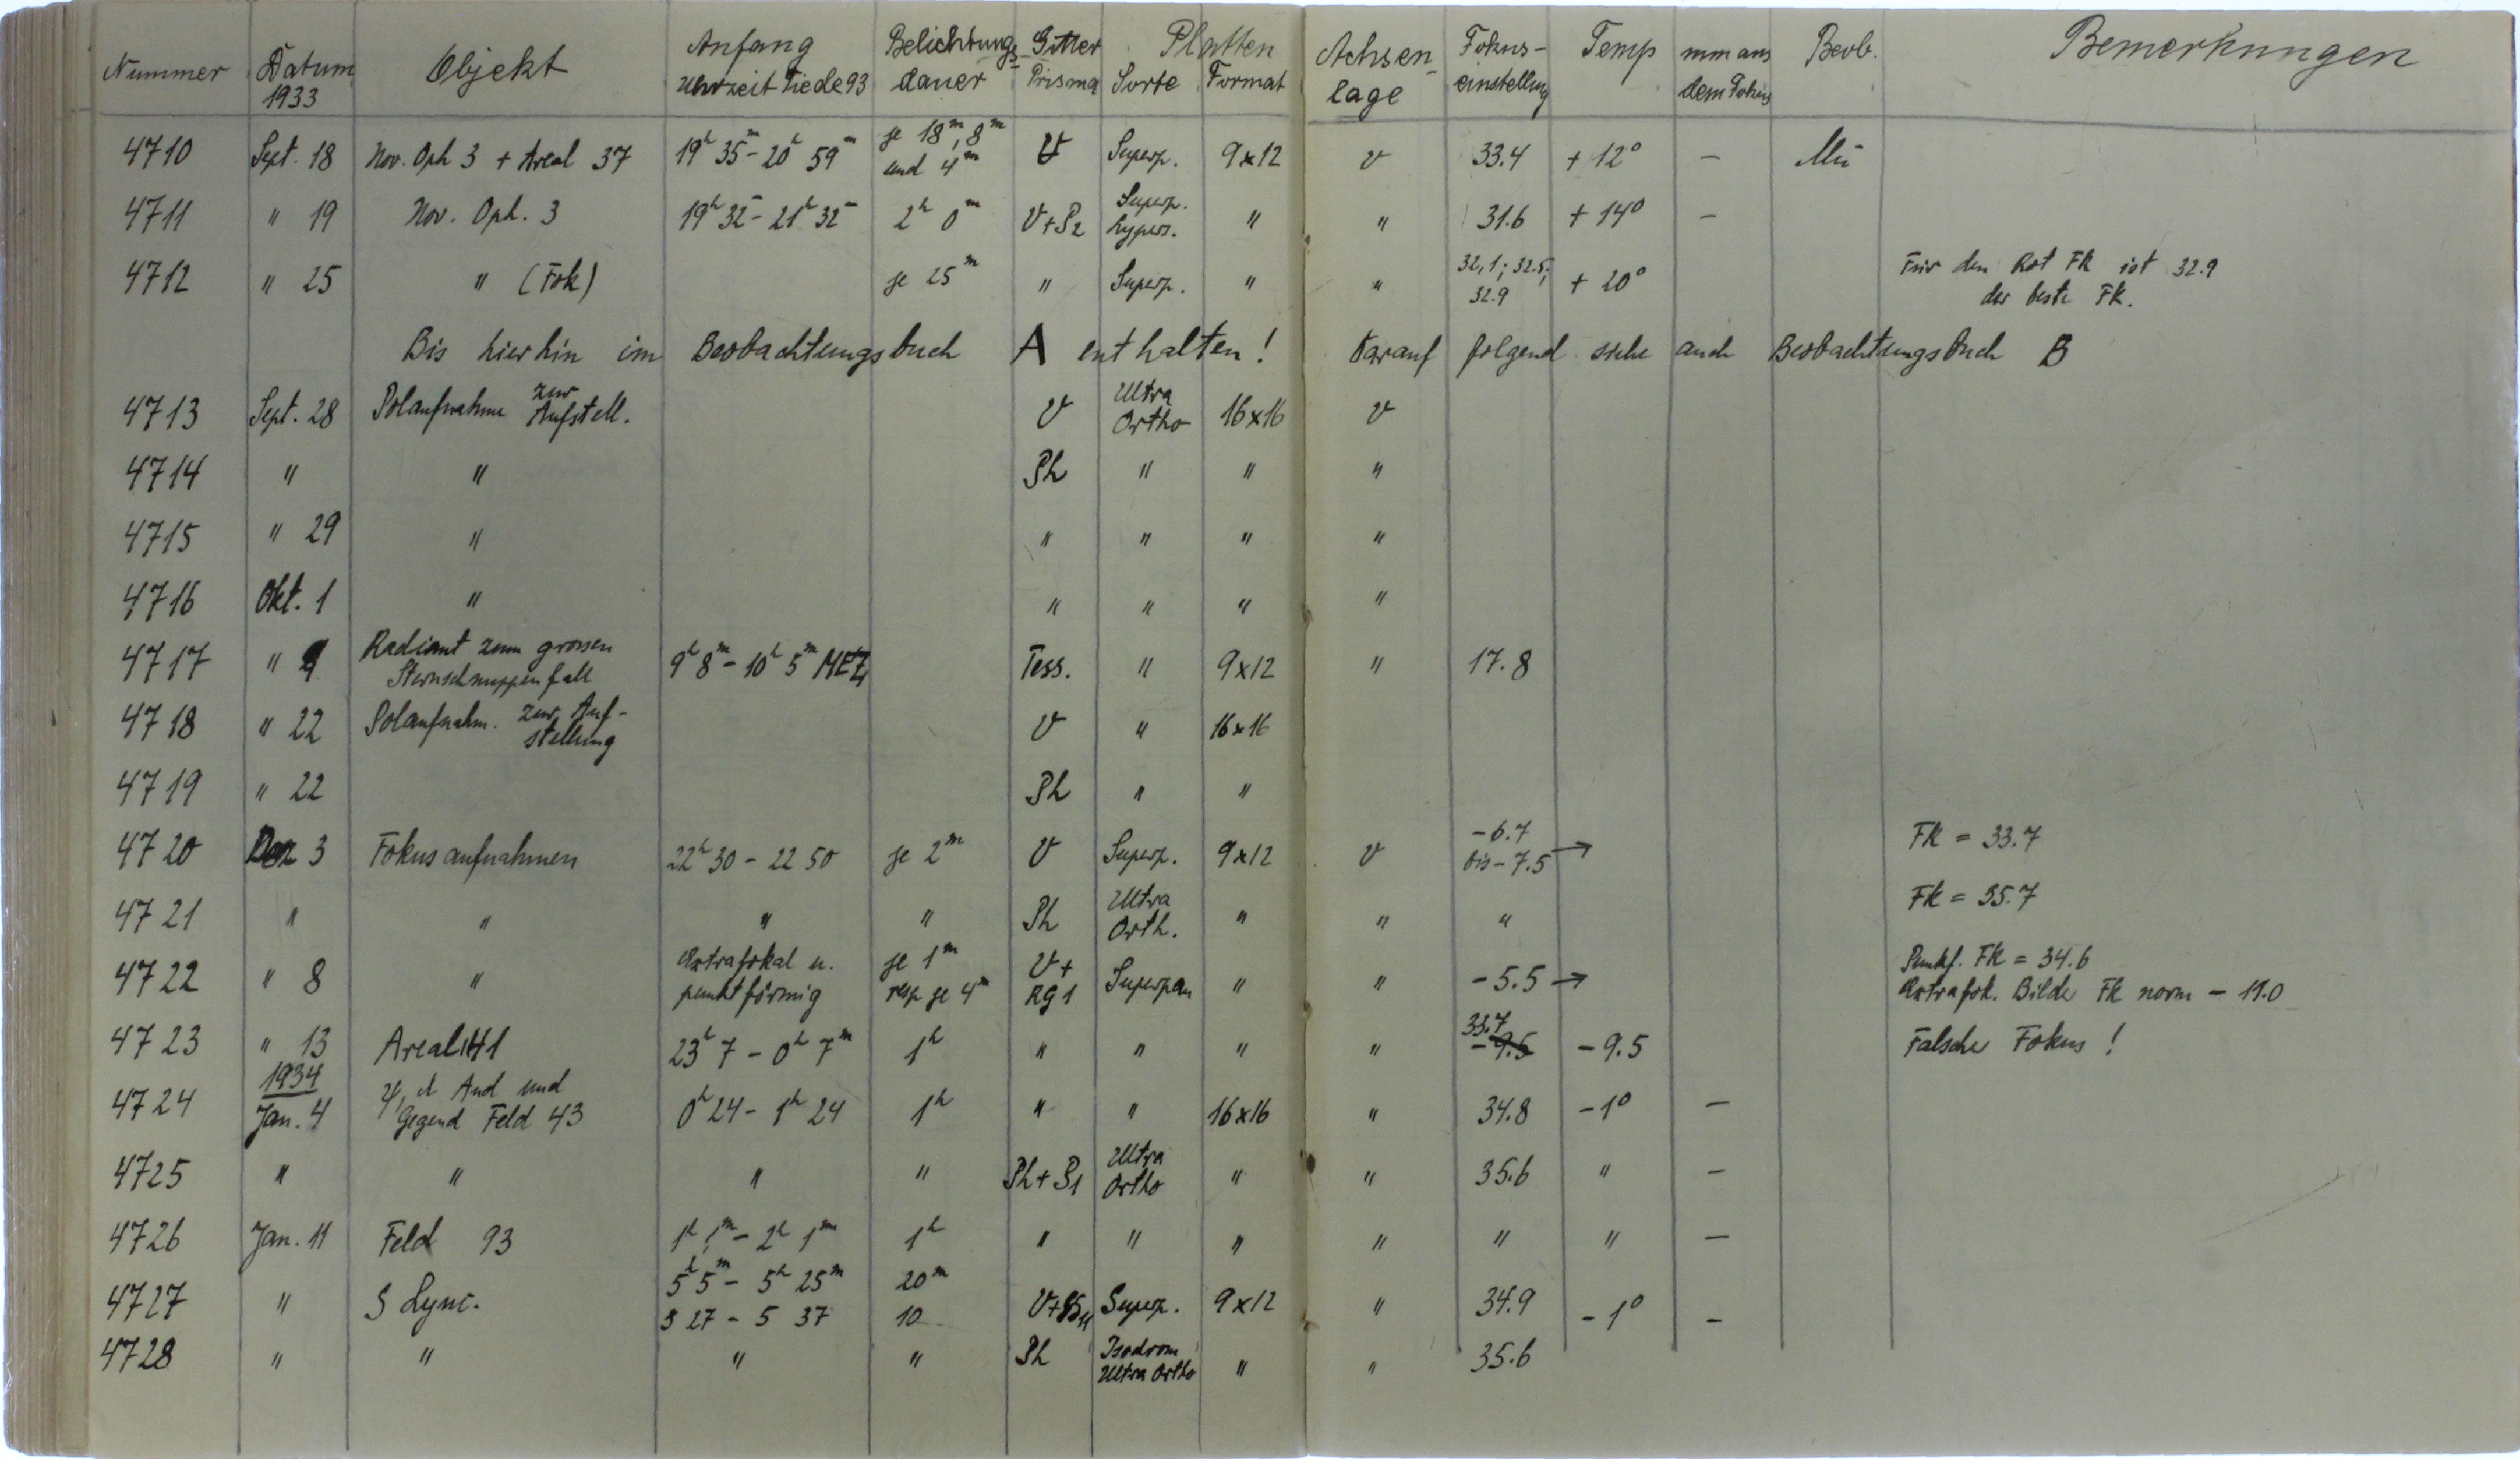 Nummer Datum 1933 Objekt Anfang Uhrzeit Tiede 93 Belichtungs- dauer Gitter Prisma Platten Sorte Format Achsen- lage Fokus- einstellung Temp mm aus dem Fokus Beob. Bemerkungen
4710 Sept. 18 Nov. Oph 3 + Areal 37 19h 35m - 20h 59m je 18m, 8m und 4m V Superp. 9x12 v 33.4 + 12° — Mü
4711 " 19 Nov. Oph. 3 19h 32m - 21h 32m 2h 0m V+P2 Superp. hypers. " " 31.6 + 14° —
4712 " 25 " (Fok) je 25m " Superp. " " 32,1; 32.5; 32.9 + 20° Für den Rot FK ist 32.9 der beste FK.
Bis hierhin im Beobachtungsbuch A enthalten! Darauf folgend siehe auch Beobachtungsbuch B
4713 Sept. 28 Polaufnahme zur Aufstell. V Ultra Ortho 16x16 v
4714 " " Ph " " "
4715 " 29 " " " " "
4716 Okt. 1 " " " " "
4717 " 9 Radiant zum grossen Sternschnuppenfall 9h 8m - 10h 5m MEZ Tess. " 9x12 " 17.8
4718 " 22 Polaufnahm. zur Auf- stellung V " 16x16
4719 " 22 Ph " "
4720 Dez 3 Fokusaufnahmen 22h 30 - 22 50 je 2m V Superp. 9x12 v -6.7 bis -7.5 → FK = 33.7
4721 " " " " Ph Ultra Orth. " " " FK = 35.7
4722 " 8 " Extrafokal u. punktförmig je 1m resp je 4m V+ RG1 Superpan " " -5.5 → Punkf. FK = 34.6 Extrafok. Bilder FK norm - 11.0
4723 " 13 Areal 141 23h 7 - 0h 7m 1h " " " " 33.7 -9.5 -9.5 Falscher Fokus!
4724 1934 Jan. 4 And und Gegend Feld 43 0h 24 - 1h 24 1h " " 16x16 " 34.8 -1° —
4725 " " " " Ph+P1 Ultra Ortho " " 35.6 " —
4726 Jan. 11 Feld 93 1h 1m - 2h 1m 1h " " " " " " —
4727 " S Lync. 5h 5m - 5h 25m 20m
5 27 - 5 37 10 Superp. 9x12 " 34.9 -1° —
4728 " " " " Ph Isodrom Ultra Ortho " " 35.6